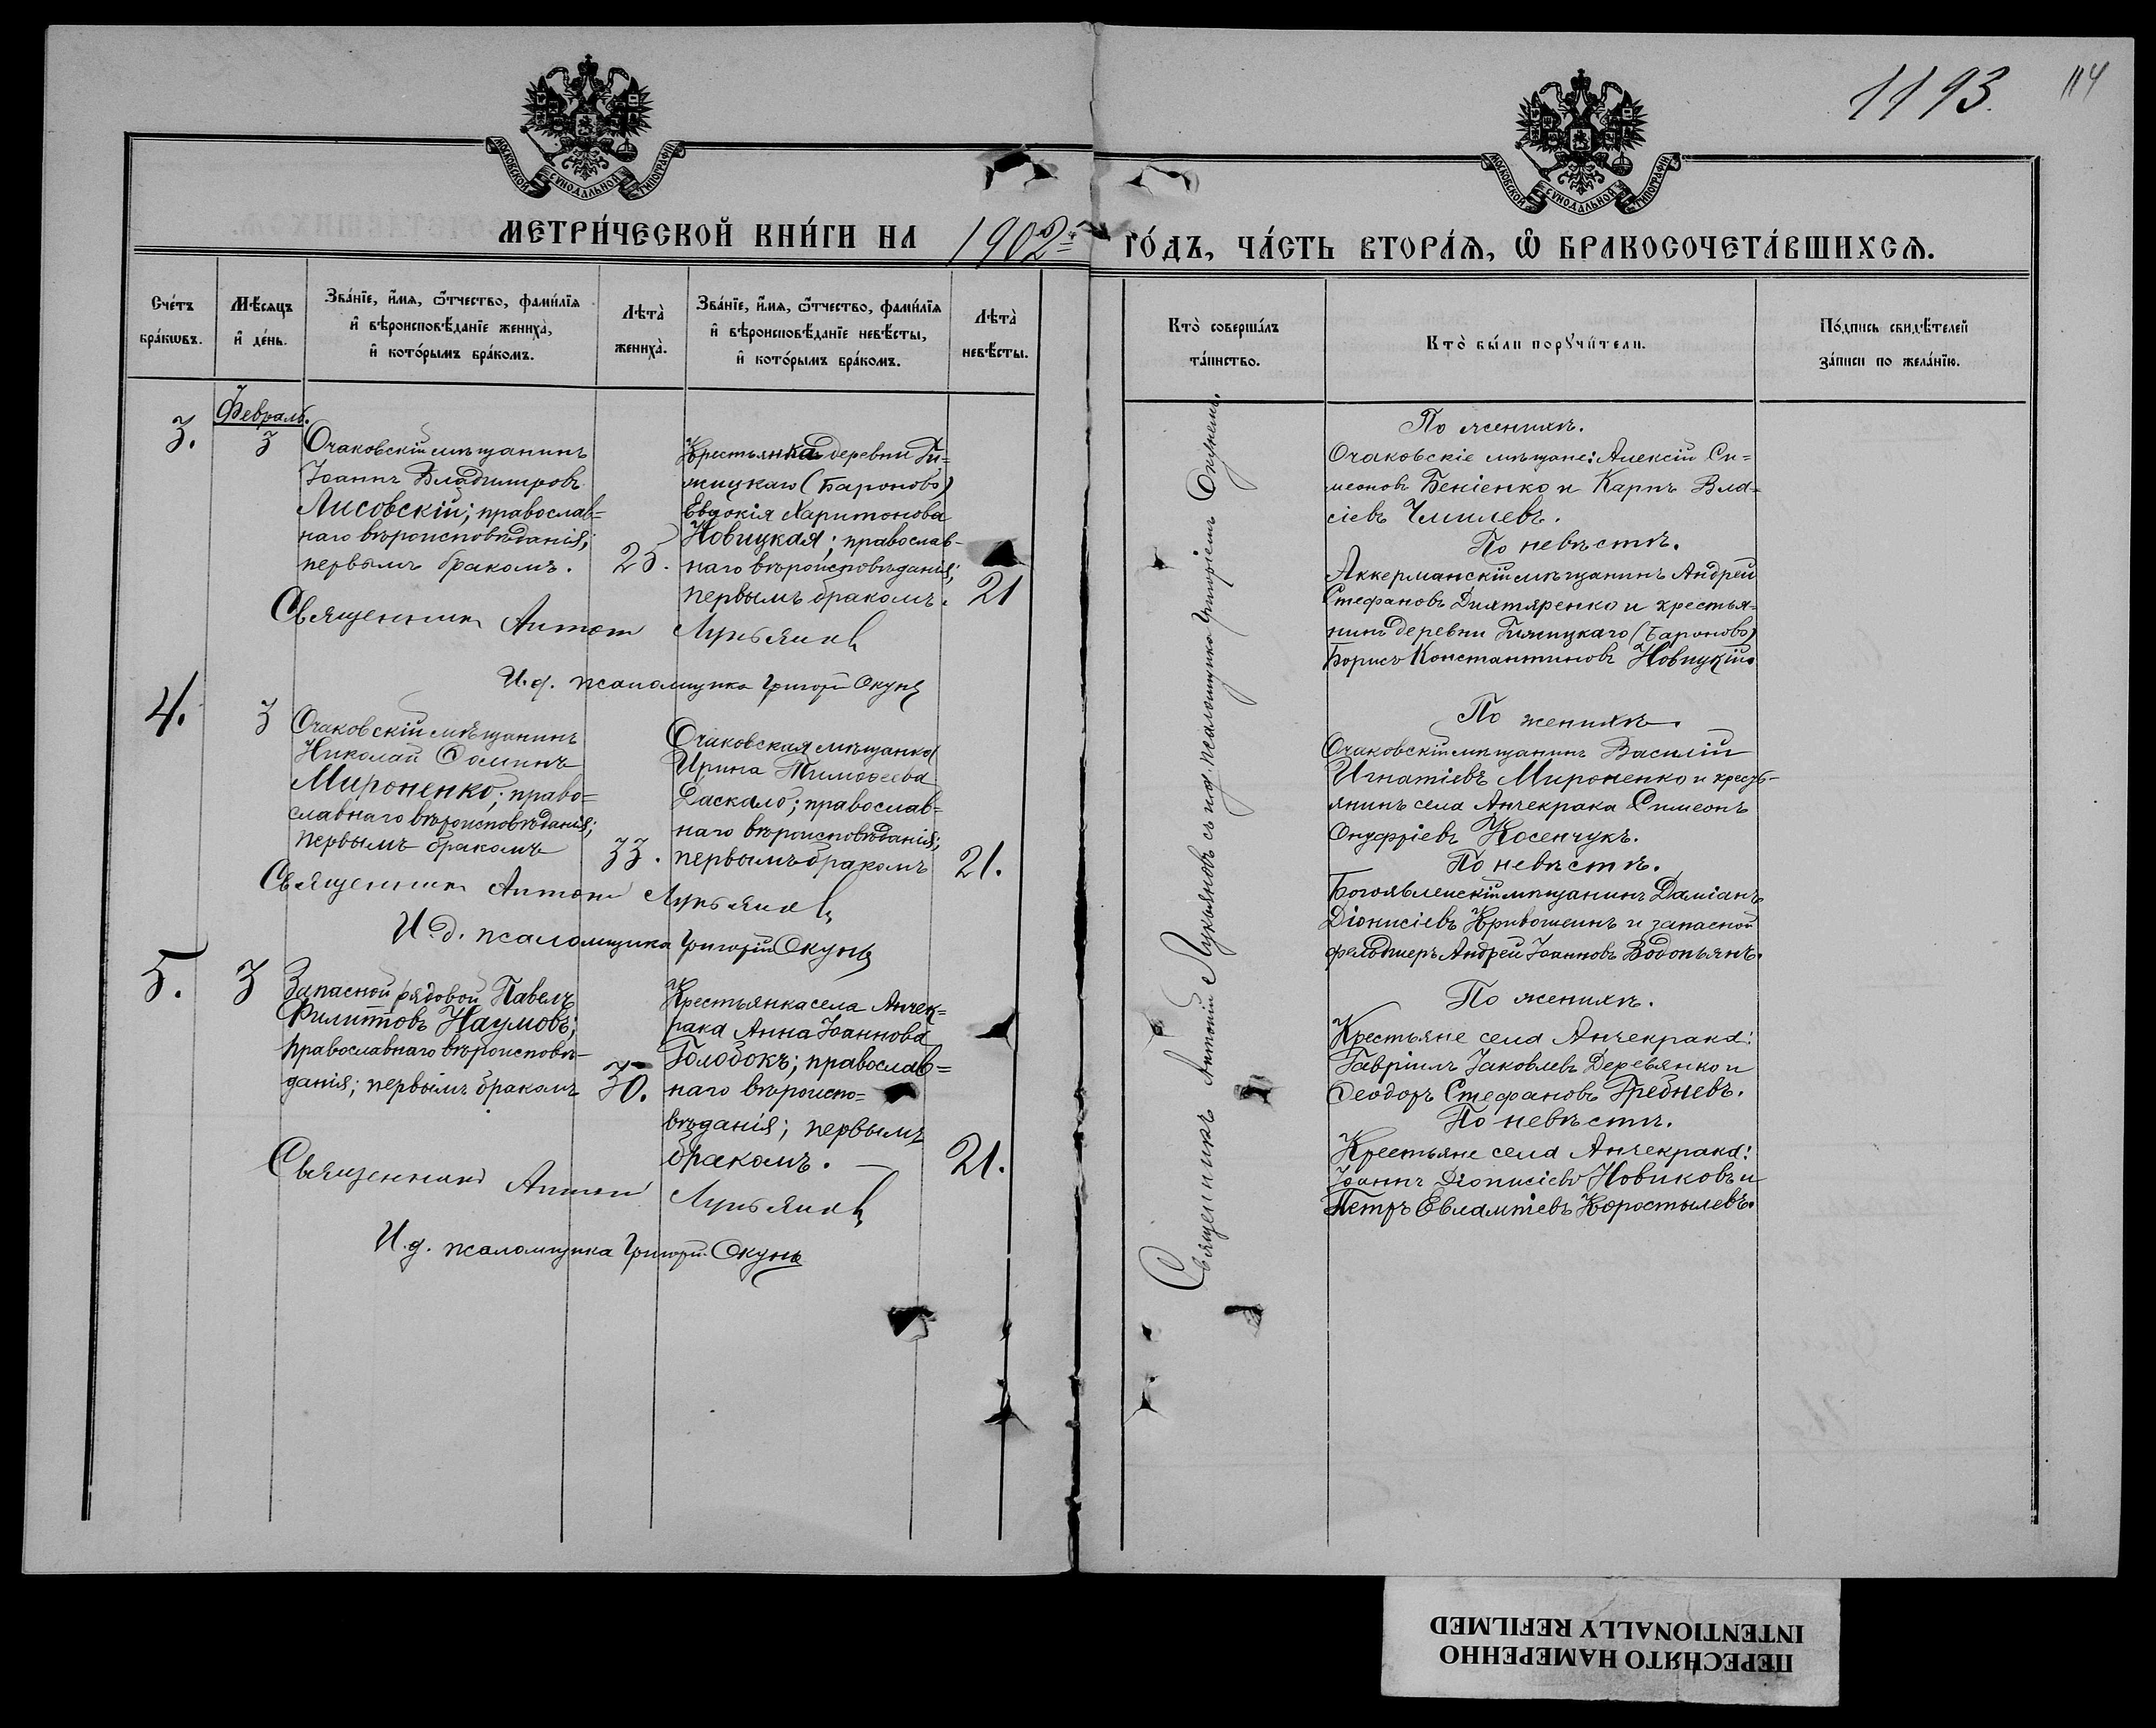 1193.
114
МОСКОВСКОЙ СѴНОДАЛЬНОЙ ТИПОГРАФІИ
МОСКОВСКОЙ СѴНОДАЛЬНОЙ ТИПОГРАФІИ
МЕТРИ́ЧЕСКОЙ КНИ́ГИ НА 1902 ГО́ДЪ, ЧА́СТЬ ВТОРА́Я, Ѽ БРАКОСОЧЕТА́ВШИХСЯ.
Сче́тъ
бра́кѡвъ.
Мѣ́сяцъ
и҆ де́нь.
Зва́нїе, и҆́мя, ѻ҆́тчество, фами́лїя
и҆ вѣроисповѣ́данїе жениха̀,
и҆ кото́рымъ бра́комъ.
Лѣта̀
жениха̀.
Зва́нїе, и҆́мя, ѻ҆́тчество, фами́лїя
и҆ вѣроисповѣ́данїе невѣ́сты,
и҆ кото́рымъ бра́комъ.
Лѣта̀
невѣ́сты.
Кто̀ соверша́лъ
та́инство.
Кто̀ бы́ли порꙋчи́тели.
По́дпись свидѣ́телей
за́писи по жела́нїю.
Февраль.
3.
3
Очаковскій мѣщанинъ
Іоаннъ Владиміровъ
Лисовскій; православ=
наго вѣроисповѣданія;
первымъ бракомъ.
25.
Крестьянка деревни Ги=
жицкаго (Бароново)
Евдокія Харитонова
Новицкая; православ-
наго вѣроисповѣданія;
первымъ бракомъ.
21
Священникъ Антоній Лукьяновъ
И.д. псаломщика Григорій Окунь
По женихѣ.
Очаковскіе мѣщане: Алексій Си=
меоновъ Бекіенко и Карпъ Вла=
сіевъ Чмилевъ.
По невѣстѣ.
Аккерманскій мѣщанинъ Андрей
Стефановъ Дихтяренко и крестья=
нинъ деревни Гижицкаго (Бароново)
Борисъ Константиновъ Новицкій.
4.
3
Очаковскій мѣщанинъ
Николай Ѳоминъ
Мироненко; право=
славнаго вѣроисповѣданія;
первымъ бракомъ
33.
Очаковская мѣщанка
Ирина Тимоѳеева
Даскало; православ=
наго вѣроисповѣданія;
первымъ бракомъ
21.
Священникъ Антоній Лукьяновъ
И.д. псаломщика Григорій Окунь
По женихѣ.
Очаковскій мѣщанинъ Василій
Игнатіевъ Мироненко и кресть-
янинъ села Анчекрака Симеонъ
Онуфріевъ Косенчукъ.
По невѣстѣ.
Богоявленскій мѣщанинъ Даміанъ
Діонисіевъ Кривошеинъ и запасной
фельдшеръ Андрей Іоанновъ Водопьянъ.
5.
3
Запасной рядовой Павелъ
Филипповъ Наумовъ;
православнаго вѣроисповѣ-
данія; первымъ бракомъ
30.
Крестьянка села Анчек=
рака Анна Іоаннова
Голобокъ; православ=
наго вѣроиспо=
вѣданія; первымъ
бракомъ.
21.
Священникъ Антоній Лукьяновъ
И.д. псаломщика Григорій Окунь
По женихѣ.
Крестьяне села Анчекрака:
Гавріилъ Іаковлевъ Деревянко и
Ѳеодоръ Стефановъ Гребневъ.
По невѣстѣ.
Крестьяне села Анчекрака:
Іоаннъ Діонисіевъ Новиковъ и
Петръ Евлампіевъ Коростылевъ.
Священникъ Антоній Лукьяновъ съ и.д. псаломщика Григоріемъ Окунемъ.
ПЕРЕСНЯТО НАМЕРЕННО
INTENTIONALLY REFILMED